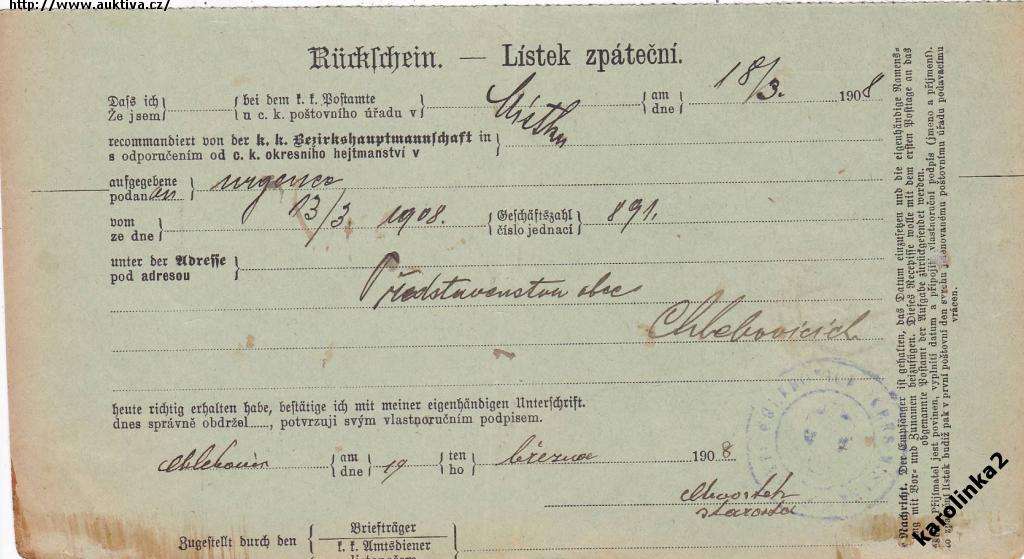 http://www.auktiva.cz/
Rückschein. — Lístek zpáteční.
Daß ich bei dem k. k. Postamte am
Že jsem u c. k. poštovního úřadu v Místku dne 18/3. 1908
recommandiert von der k. k. Bezirkshauptmannschaft in
s odporučením od c. k. okresního hejtmanství v
aufgegebene
podanou urgenci
vom Geschäftszahl
ze dne 13/3 1908. číslo jednací 891.
unter der Adresse
pod adresou
Představenstvu obce
Chlebovicích
heute richtig erhalten habe, bestätige ich mit meiner eigenhändigen Unterschrift.
dnes správně obdržel....., potvrzuji svým vlastnoručním podpisem.
am ten
Chlebovice dne 19 ho března 1908
starosta
Zugestellt durch den
Briefträger
k. k. Amtsdiener
Nachricht. Der Empfänger ist gehalten, das Datum einzusetzen und die eigenhändige Namens-
ng mit Vor- und Zunamen beizufügen. Dieses Recepisse wolle mit dem ersten Posttage an das
obgenannte Postamt der Aufgabe zurückgesendet werden.
Přijímatel jest povinen, vyplniti datum a připojiti vlastnoruční podpis (jméno a příjmení).
to zpáteční lístek budiž pak v první poštovní den svrchu jmenovanému poštovnímu úřadu podavacímu
vrácen.
karolinka2